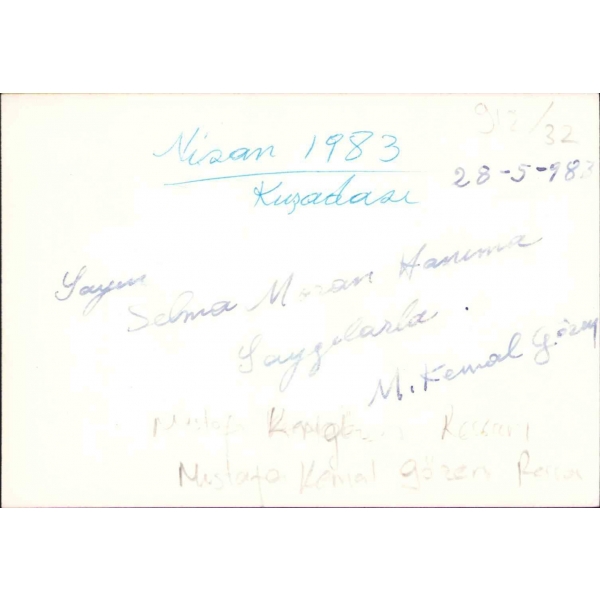 912/32
Nisan 1983
Kuşadası
28-5-983
Sayın
Selma Moran Hanıma
Saygılarla.
M. Kemal Gözen
Mustafa
Mustafa Kemal Gözen